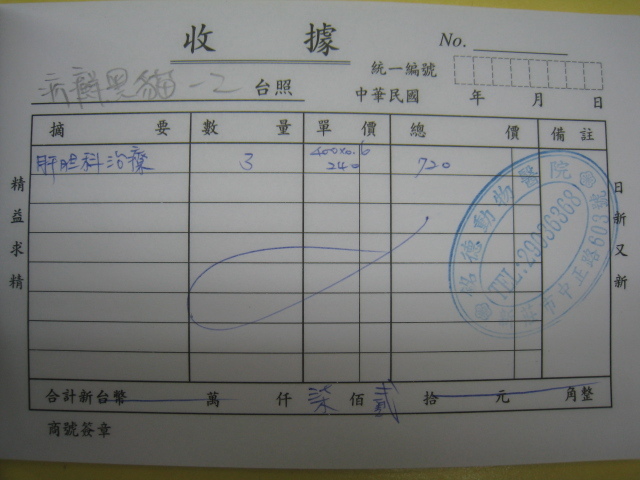 收據
No.
統一編號
病齁黑貓一乙 台照
中華民國 年 月 日
摘要 數量 單價 總價 備註
肝胆科治療 3 400x0.6 240 720
精益求精
日新又新
動物醫院
TEL:29036368
市中正路609號
合計新台幣 萬 仟 柒佰 貳拾 元 角整
商號簽章